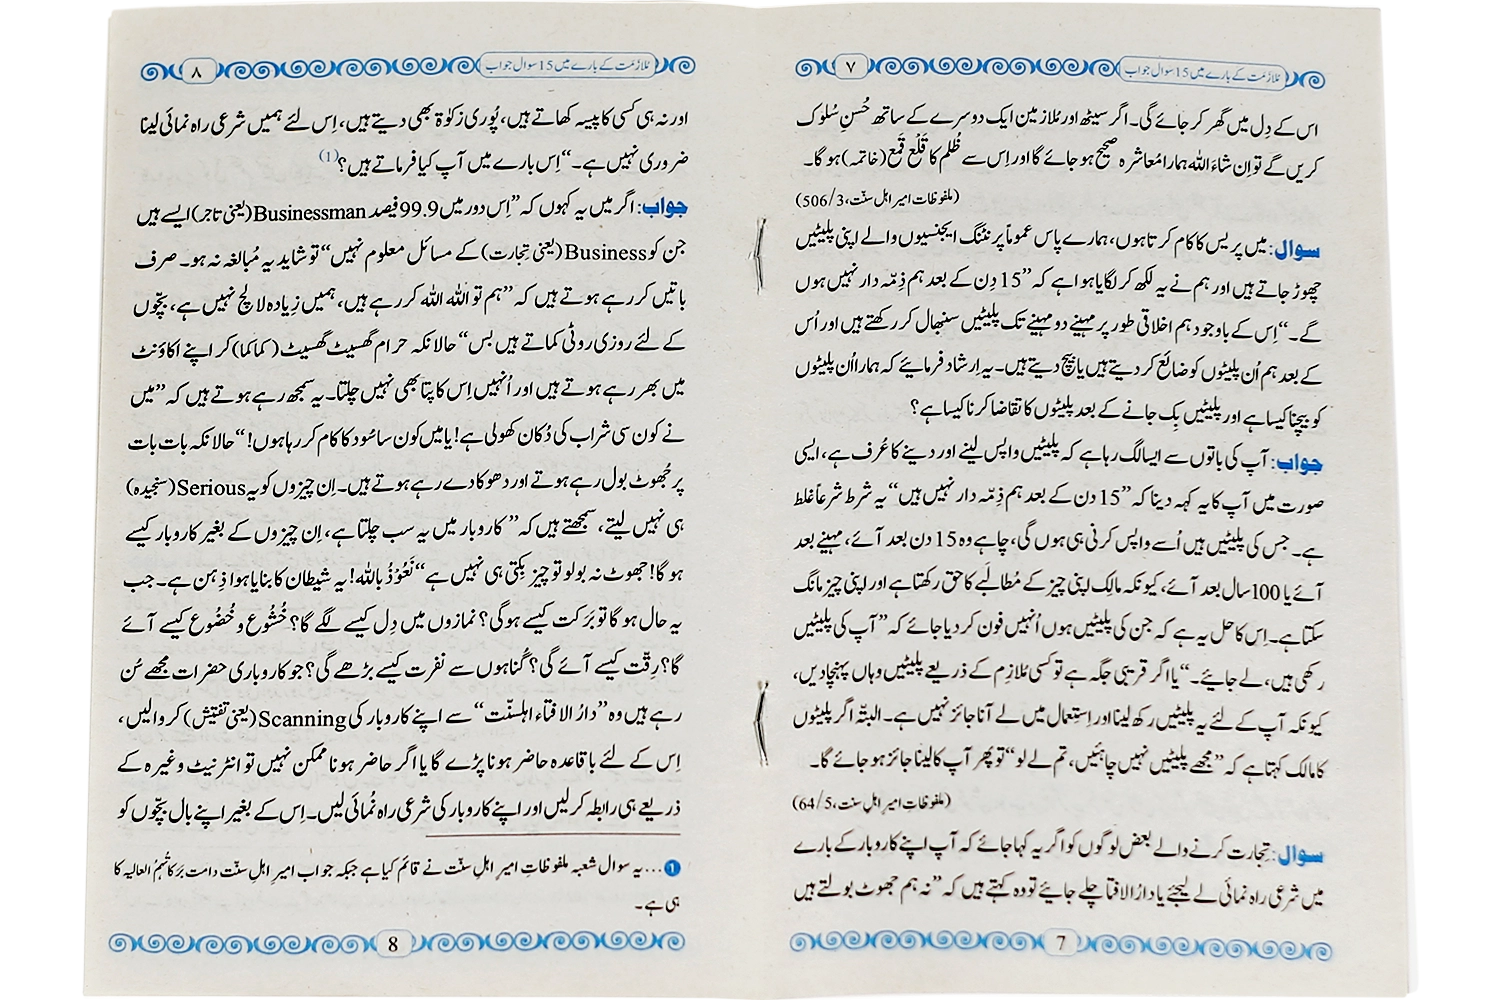 مُلازمت کے بارے میں 15 سوال جواب
۷
اس کے دِل میں گھر کر جائے گی۔ اگر سیٹھ اور مُلازمین ایک دوسرے کے ساتھ حُسنِ سُلوک
کریں گے تو اِن شاءَ اللہ ہمارا مُعاشرہ صحیح ہو جائے گا اور اِس سے ظُلم کا قَلْع قَمع (خاتمہ) ہو گا۔
(ملفوظات امیر اہل سنّت، 506/3)
سوال: میں پریس کا کام کرتا ہوں، ہمارے پاس عموماً پرنٹنگ ایجنسیوں والے اپنی پلیٹیں
چھوڑ جاتے ہیں اور ہم نے یہ لکھ کر لگایا ہوا ہے کہ ”15 دِن کے بعد ہم ذِمّہ دار نہیں ہوں
گے۔“ اِس کے باوجود ہم اخلاقی طور پر مہینے دو مہینے تک پلیٹیں سنبھال کر رکھتے ہیں اور اُس
کے بعد ہم اُن پلیٹوں کو ضائع کر دیتے ہیں یا بیچ دیتے ہیں۔ یہ اِرشاد فرمائیے کہ ہمارا اُن پلیٹوں
کو بیچنا کیسا ہے اور پلیٹیں بِک جانے کے بعد پلیٹوں کا تقاضا کرنا کیسا ہے؟
جواب: آپ کی باتوں سے ایسا لگ رہا ہے کہ پلیٹیں واپس لینے اور دینے کا عُرف ہے، ایسی
صورت میں آپ کا یہ کہہ دینا کہ ”15 دن کے بعد ہم ذِمّہ دار نہیں ہیں“ یہ شرط شرعاً غلط
ہے۔ جس کی پلیٹیں ہیں اُسے واپس کرنی ہی ہوں گی، چاہے وہ 15 دن بعد آئے، مہینے بعد
آئے یا 100 سال بعد آئے، کیونکہ مالِک اپنی چیز کے مُطالَبے کا حق رکھتا ہے اور اپنی چیز مانگ
سکتا ہے۔ اِس کا حل یہ ہے کہ جن کی پلیٹیں ہوں اُنہیں فون کر دیا جائے کہ ”آپ کی پلیٹیں
رکھی ہیں، لے جائیے۔“ یا اگر قریبی جگہ ہے تو کسی مُلازِم کے ذریعے پلیٹیں وہاں پہنچا دیں،
کیونکہ آپ کے لئے یہ پلیٹیں رکھ لینا اور اِستعمال میں لے آنا جائز نہیں ہے۔ البتّہ اگر پلیٹوں
کا مالک کہتا ہے کہ ”مجھے پلیٹیں نہیں چاہئیں، تم لے لو“ تو پھر آپ کا لینا جائز ہو جائے گا۔
(ملفوظات امیر اہل سنت، 64/5)
سوال: تجارت کرنے والے بعض لوگوں کو اگر یہ کہا جائے کہ آپ اپنے کاروبار کے بارے
میں شرعی راہ نمائی لے لیجئے یا دارُ الافتا چلے جائیے تو وہ کہتے ہیں کہ ”نہ ہم جھوٹ بولتے ہیں
7
مُلازمت کے بارے میں 15 سوال جواب
۸
اور نہ ہی کسی کا پیسہ کھاتے ہیں، پُوری زکوٰۃ بھی دیتے ہیں، اِس لئے ہمیں شرعی راہ نمائی لینا
ضروری نہیں ہے۔“ اِس بارے میں آپ کیا فرماتے ہیں؟(1)
جواب: اگر میں یہ کہوں کہ ”اِس دور میں 99.9 فیصد Businessman (یعنی تاجر) ایسے ہیں
جن کو Business (یعنی تجارت) کے مسائل معلوم نہیں“ تو شاید یہ مُبالغہ نہ ہو۔ صرف
باتیں کر رہے ہوتے ہیں کہ ”ہم تو اللہ اللہ کر رہے ہیں، ہمیں زِیادہ لالچ نہیں ہے، بچّوں
کے لئے روزی روٹی کماتے ہیں بس“ حالانکہ حرام گھسیٹ گھسیٹ (کما کما) کر اپنے اکاؤنٹ
میں بھر رہے ہوتے ہیں اور اُنہیں اِس کا پتا بھی نہیں چلتا۔ یہ سمجھ رہے ہوتے ہیں کہ ”میں
نے کون سی شراب کی دُکان کھولی ہے! یا میں کون سا سُود کا کام کر رہا ہوں!“ حالانکہ بات بات
پر جُھوٹ بول رہے ہوتے اور دھوکا دے رہے ہوتے ہیں۔ اِن چیزوں کو یہ Serious (سنجیدہ)
ہی نہیں لیتے، سمجھتے ہیں کہ ”کاروبار میں یہ سب چلتا ہے، اِن چیزوں کے بغیر کاروبار کیسے
ہو گا! جھوٹ نہ بولو تو چیز بِکتی ہی نہیں ہے“ نَعُوْذُ بِاللہ! یہ شیطان کا بنایا ہوا ذِہن ہے۔ جب
یہ حال ہو گا تو بَرَکت کیسے ہوگی؟ نمازوں میں دِل کیسے لگے گا؟ خُشُوع و خُضُوع کیسے آئے
گا؟ رِقّت کیسے آئے گی؟ گُناہوں سے نفرت کیسے بڑھے گی؟ جو کاروباری حضرات مجھے سُن
رہے ہیں وہ ”دارُ الافتاء اہلسنّت“ سے اپنے کاروبار کی Scanning (یعنی تفتیش) کروا لیں،
اِس کے لئے باقاعدہ حاضر ہونا پڑے گا یا اگر حاضر ہونا ممکن نہیں تو انٹرنیٹ وغیرہ کے
ذریعے ہی رابطہ کر لیں اور اپنے کاروبار کی شرعی راہ نُمائی لیں۔ اِس کے بغیر اپنے بال بچّوں کو
1 ...یہ سوال شعبہ ملفوظاتِ امیرِ اہلِ سنّت نے قائم کیا ہے جبکہ جواب امیرِ اہلِ سنّت دامت بَرَکاتُہمُ العالیہ کا
ہی ہے۔
8